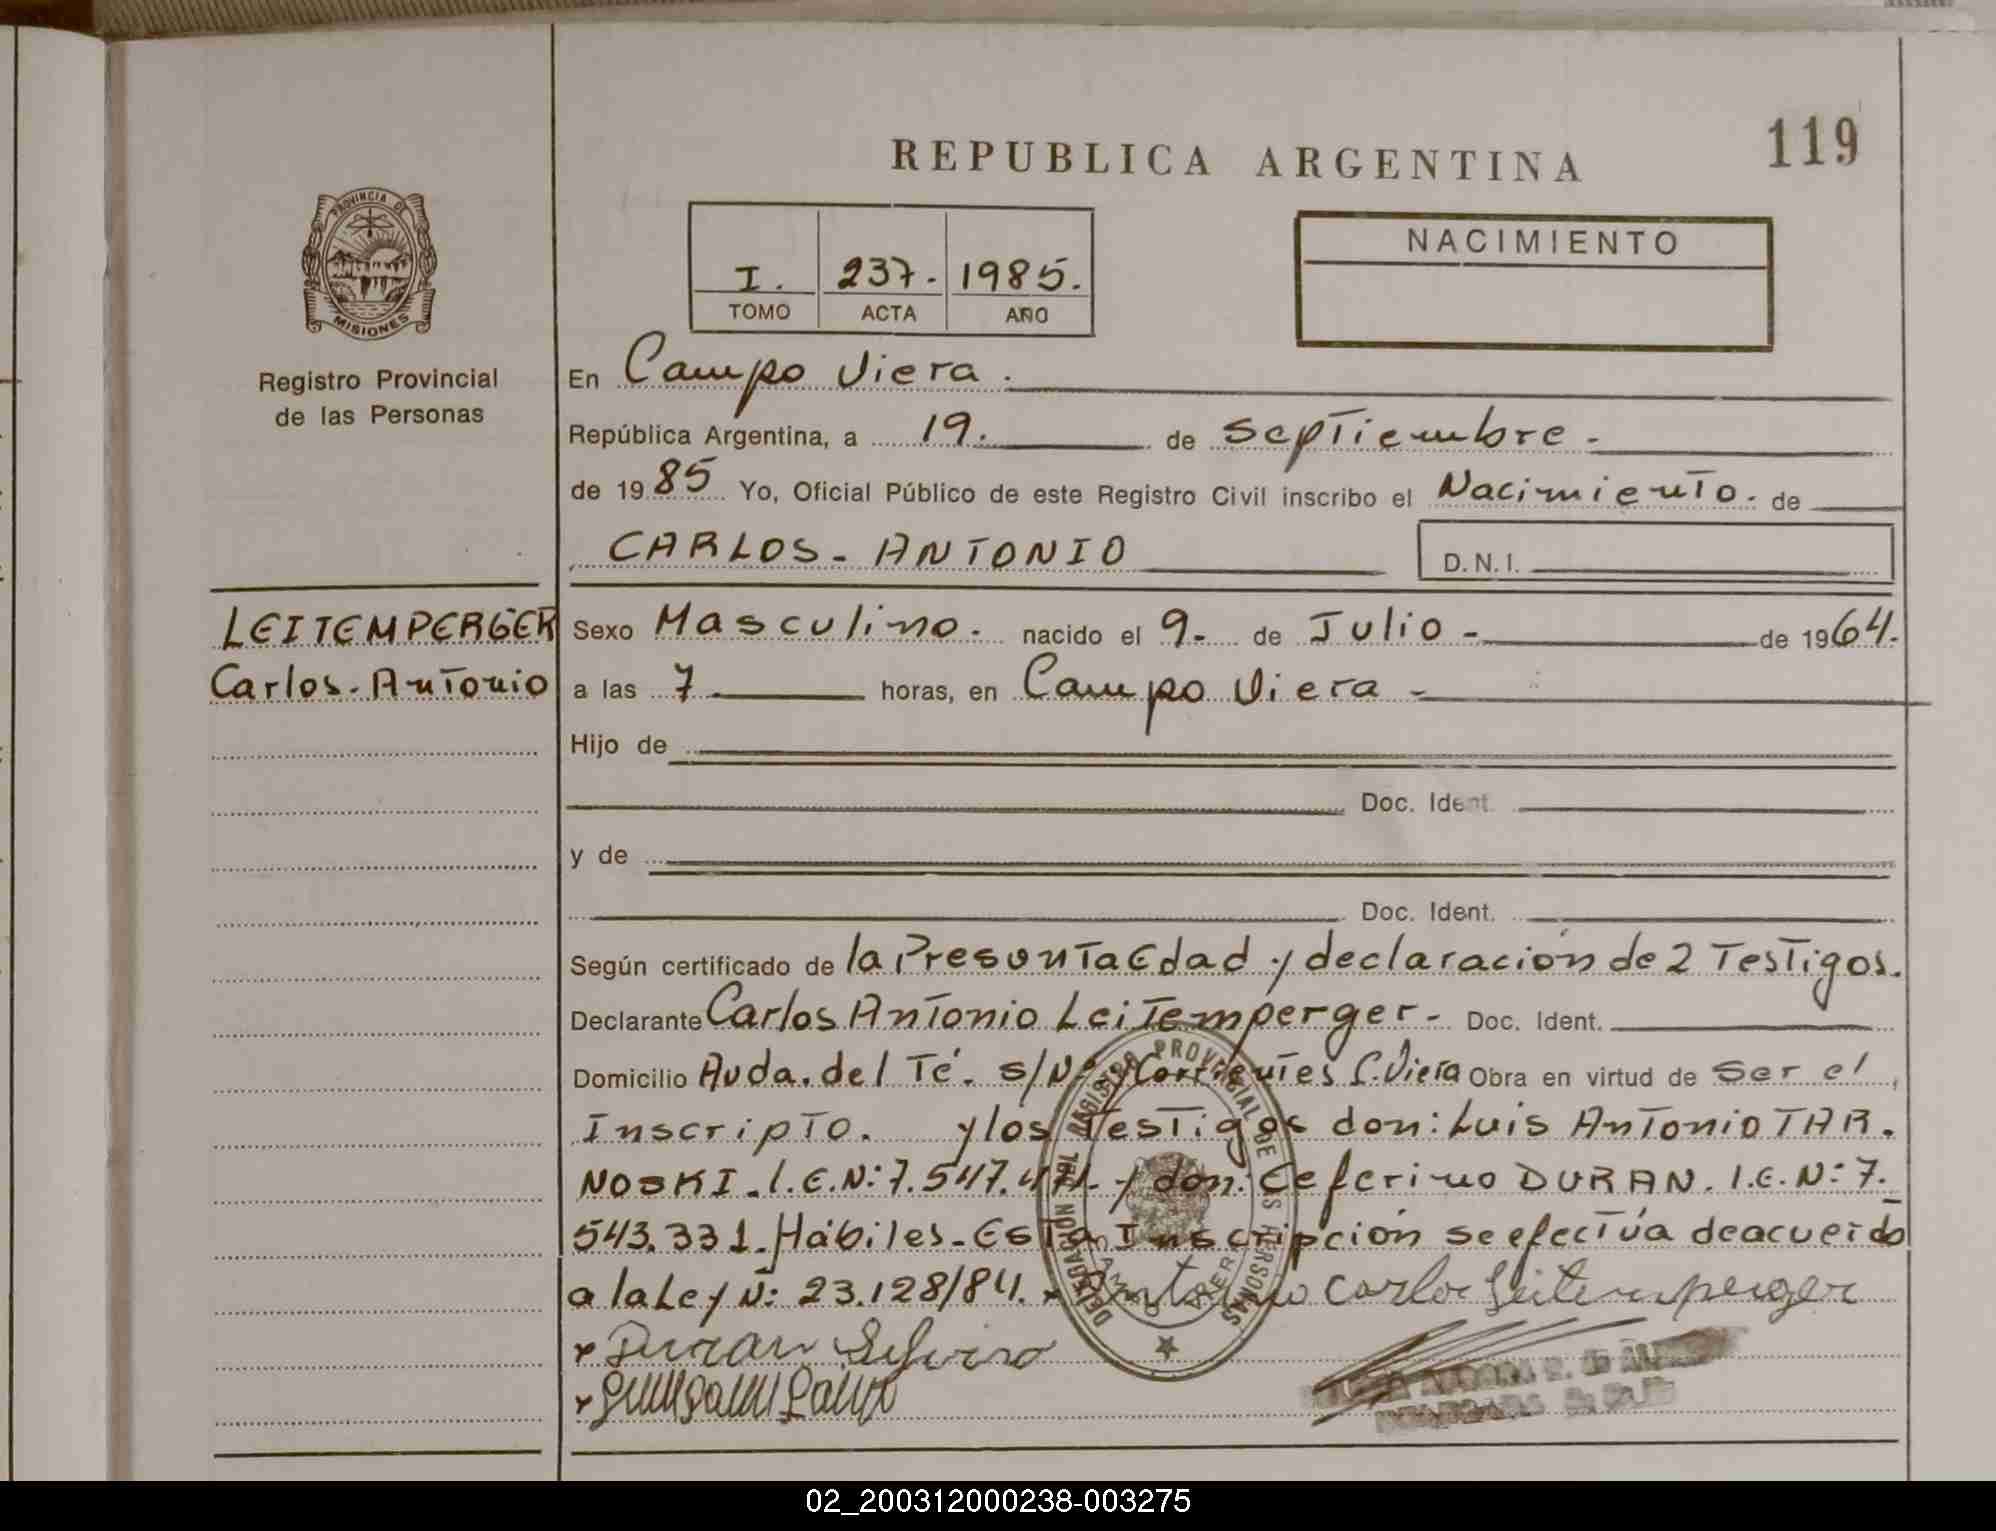 REPUBLICA ARGENTINA
119
PROVINCIA DE
MISIONES
Registro Provincial
de las Personas
I. 237. 1985.
TOMO ACTA AÑO
NACIMIENTO
En Campo Viera.
República Argentina, a 19. de Septiembre.
de 1985 Yo, Oficial Público de este Registro Civil inscribo el Nacimiento. de
CARLOS - ANTONIO D.N.I.
LEITEMPERGER
Carlos. Antonio
Sexo Masculino. nacido el 9. de Julio - de 1964.
a las 7 horas, en Campo Viera -
Hijo de
Doc. Ident.
y de
Doc. Ident.
Según certificado de la Presunta Edad y declaración de 2 Testigos.
Declarante Carlos Antonio Leitemperger - Doc. Ident.
Domicilio Avda. del Té. s/Nº y Corrientes C. Viera Obra en virtud de Ser el
Inscripto. y los Testigos don: Luis Antonio TAR.
NOSKI. I.E.N: 7.547.471. y don: Ceferino DURAN. I.E. N: 7.
543.331. Hábiles. Esta Inscripción se efectúa de acuerdo
a la Ley N: 23.128/84. Antonio Carlos Leitemperger
Duran Seferino
DELEGACION DEL REGISTRO PROVINCIAL DE LAS PERSONAS
02_200312000238-003275